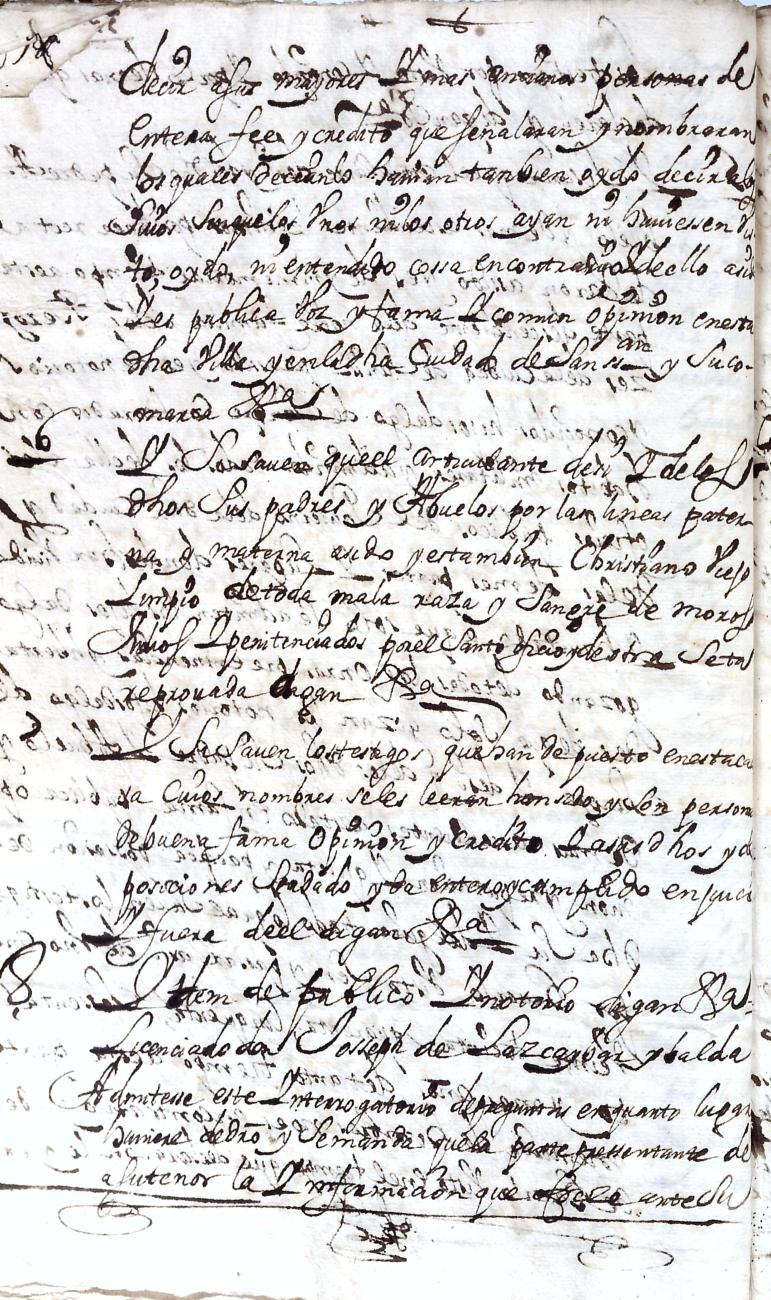 decir a sus mayores Y mas ancianas personas de
Entera fee y credito que señalaran y nombraran
los quales decianlo havian tanbien oydo decir a los
suios sin que los Vnos ni los otros ayan ni huviessen vis
to, oydo, ni entendido cossa en contrario de ello asi
Y es publica Voz y fama Y comun opinion en esta
dha Villa y en la dha Ciudad de San ssn y su co-
marca Ras
6
Y Si saven que el articulante de si Y de los
dhos Sus padres y Abuelos por las lineas pater
na y materna a sido y es tambien Christiano Viejo
Limpio de toda mala raza y Sangre de moros
Judios Y penitenciados por el Santo oficio y de otra Seta
reprovada digan Ra
7
Y Si Saven los testigos que han depuesto en esta ca
ra Cuios nombres se les leeran han sido y son person
de buena fama opinion y credito Y a sus dhos y de
posiciones se a dado y da entero y cumplido en juici
Y fuera de el digan Ra
8
Y Item de publico Y notorio digan Ra
Licenciado don Joseph de Lazcaybar y balda
Admitesse este Ynterrogatorio de preguntas en quanto lugar
huviere de dro y Se manda que la parte pressentante de
a su tenor la Ynformacion que ofrece ante Su